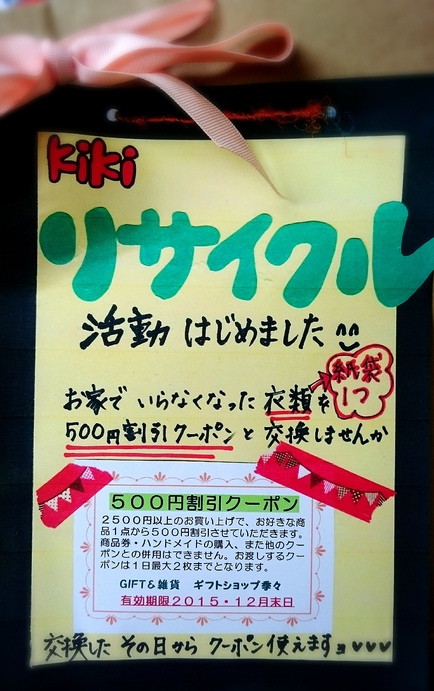 kiki
リサイクル
活動 はじめました
紙袋
1つ
お家で いらなくなった 衣類を
500円割引クーポンと 交換しませんか
５００円割引クーポン
２５００円以上のお買い上げで、お好きな商
品１点から５００円割引させていただきます。
商品券・ハンドメイドの購入、また他のクー
ポンとの併用はできません。お渡しするクー
ポンは１日最大２枚までとなります。
GIFT＆雑貨　ギフトショップ季々
有効期限２０１５・１２月末日
交換した その日から クーポン使えますョ♥♥♥